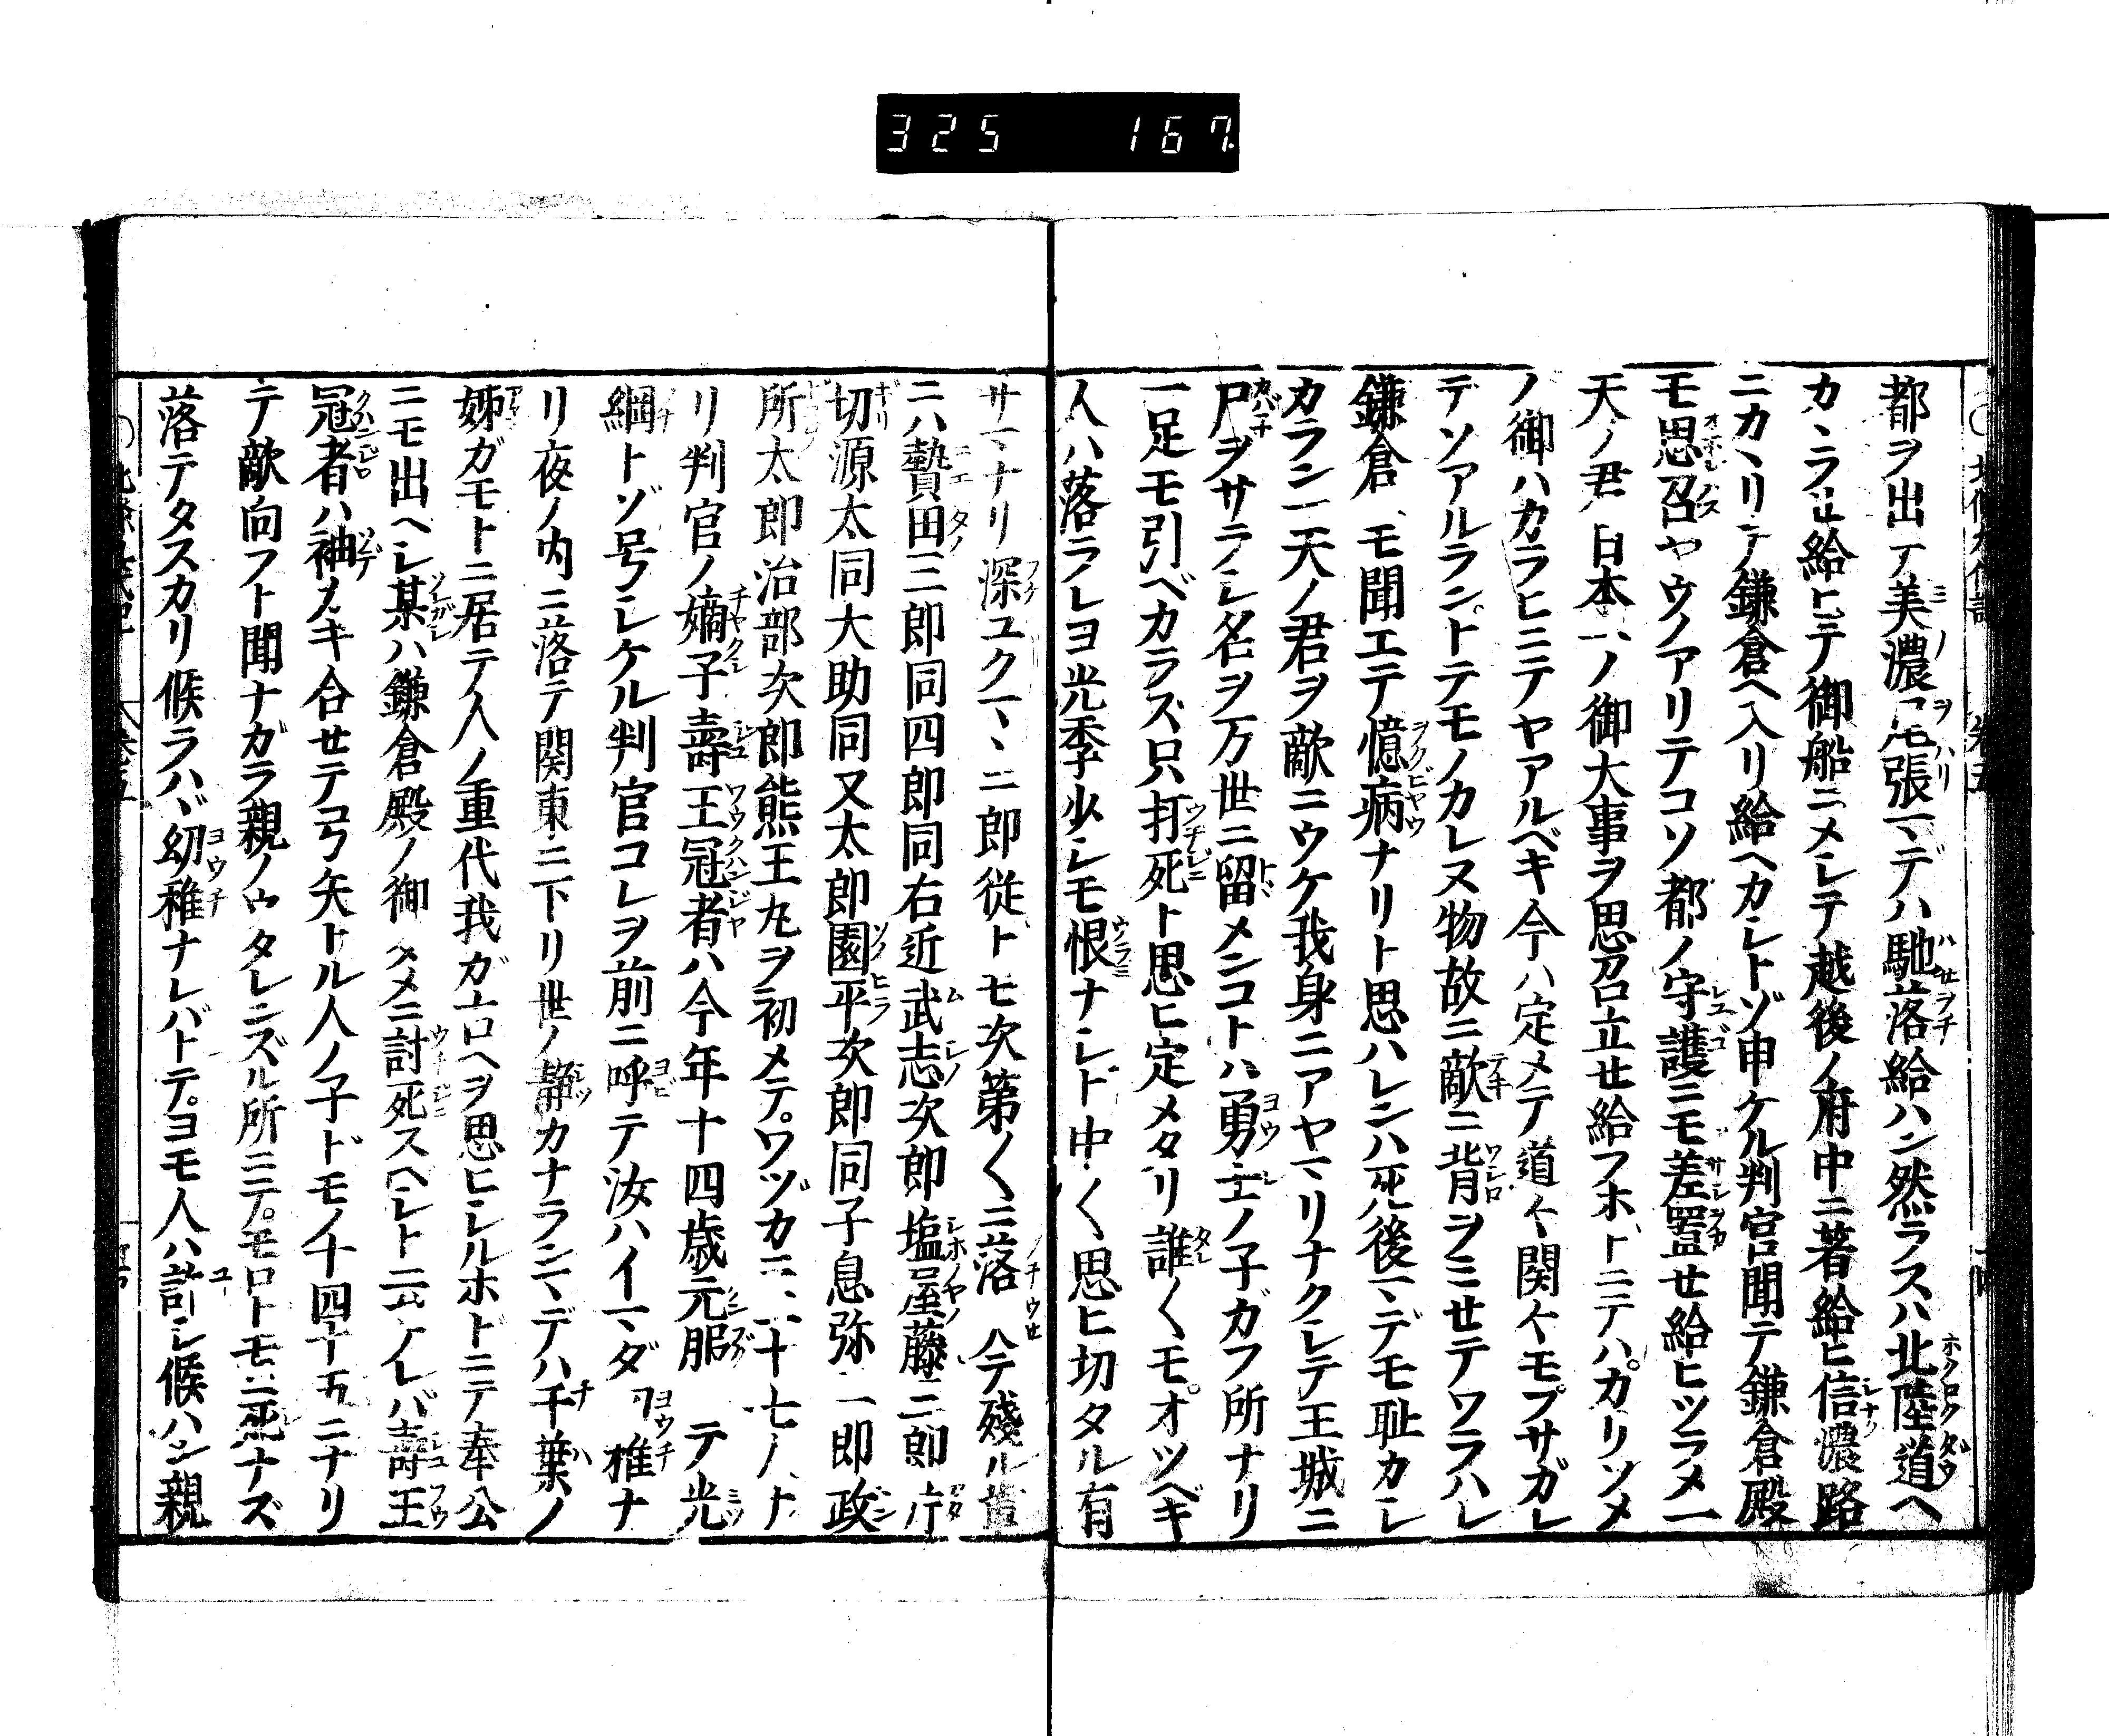 325 167.
都ヲ出テ美濃尾張マデハ馳落給ハン然ラスハ北陸道ヘ
カヽラせ給ヒテ御船ニメレテ越後ノ府中ニ著給ヒ信濃路
ニカヽリテ鎌倉ヘ入リ給ヘカシトゾ申ケル判官聞テ鎌倉殿
モ思召ヤウノアリテコソ都ノ守護ニモ差置セ給ヒツラメ一
天ノ君ノ日本一ノ御大事ヲ思召立せ給フホトニテハカリソメ
ノ御ハカラヒニテヤアルベキ今ハ定メテ道々関々モフサガレ
テソアルラントテモノカレヌ物故ニ敵ニ背ヲミせテワラハレ
鎌倉ヘモ聞エテ憶病ナリト思ハレンハ死後マデモ耻カシ
カラン一天ノ君ヲ敵ニウケ我身ニアヤマリナクシテ王城ニ
尸ヲサラシ名ヲ万世ニ留メンコトハ勇士ノ子ガフ所ナリ
一足モ引ベカラズ只打死ト思ヒ定メタリ誰〱モオツベキ
人ハ落ラレヨ光季少シモ恨ナシト中〱思ヒ切タル有
サマナリ深ユクマヽニ郎従トモ次第〱ニ落 テ殘ル者
ニハ贄田三郎同四郎同右近武志次郎塩屋藤三郎
切源太同大助同又太郎園平次郎同子息弥二郎政
所太郎治部次郎熊王丸ヲ初メテワヅカニ二十七人ト
リ判官ノ嫡子壽王冠者ハ今年十四歳元服 テ光
綱トゾ号シケル判官コレヲ前ニ呼テ汝ハイマダ 稚ナ
リ夜ノ内ニ落テ関東ニ下リ世ノ静カナランマデハ千葉ノ
姊ガモトニ居テ人ノ重代我ガ古ヘヲ思ヒシルホトニテ奉公
ニモ出ヘシ某ハ鎌倉殿ノ御タメニ討死スヘシト云ケレバ壽王
冠者ハ袖カキ合せテ弓矢トル人ノ子ドモノ十四十五ニナリ
テ敵向フト聞ナガラ親ノウタレンズル所ニテモロトモニ死ナズ
落テタスカリ候ラハヾ幼稚ナレバトテヨモ人ハ許シ候ハシ親